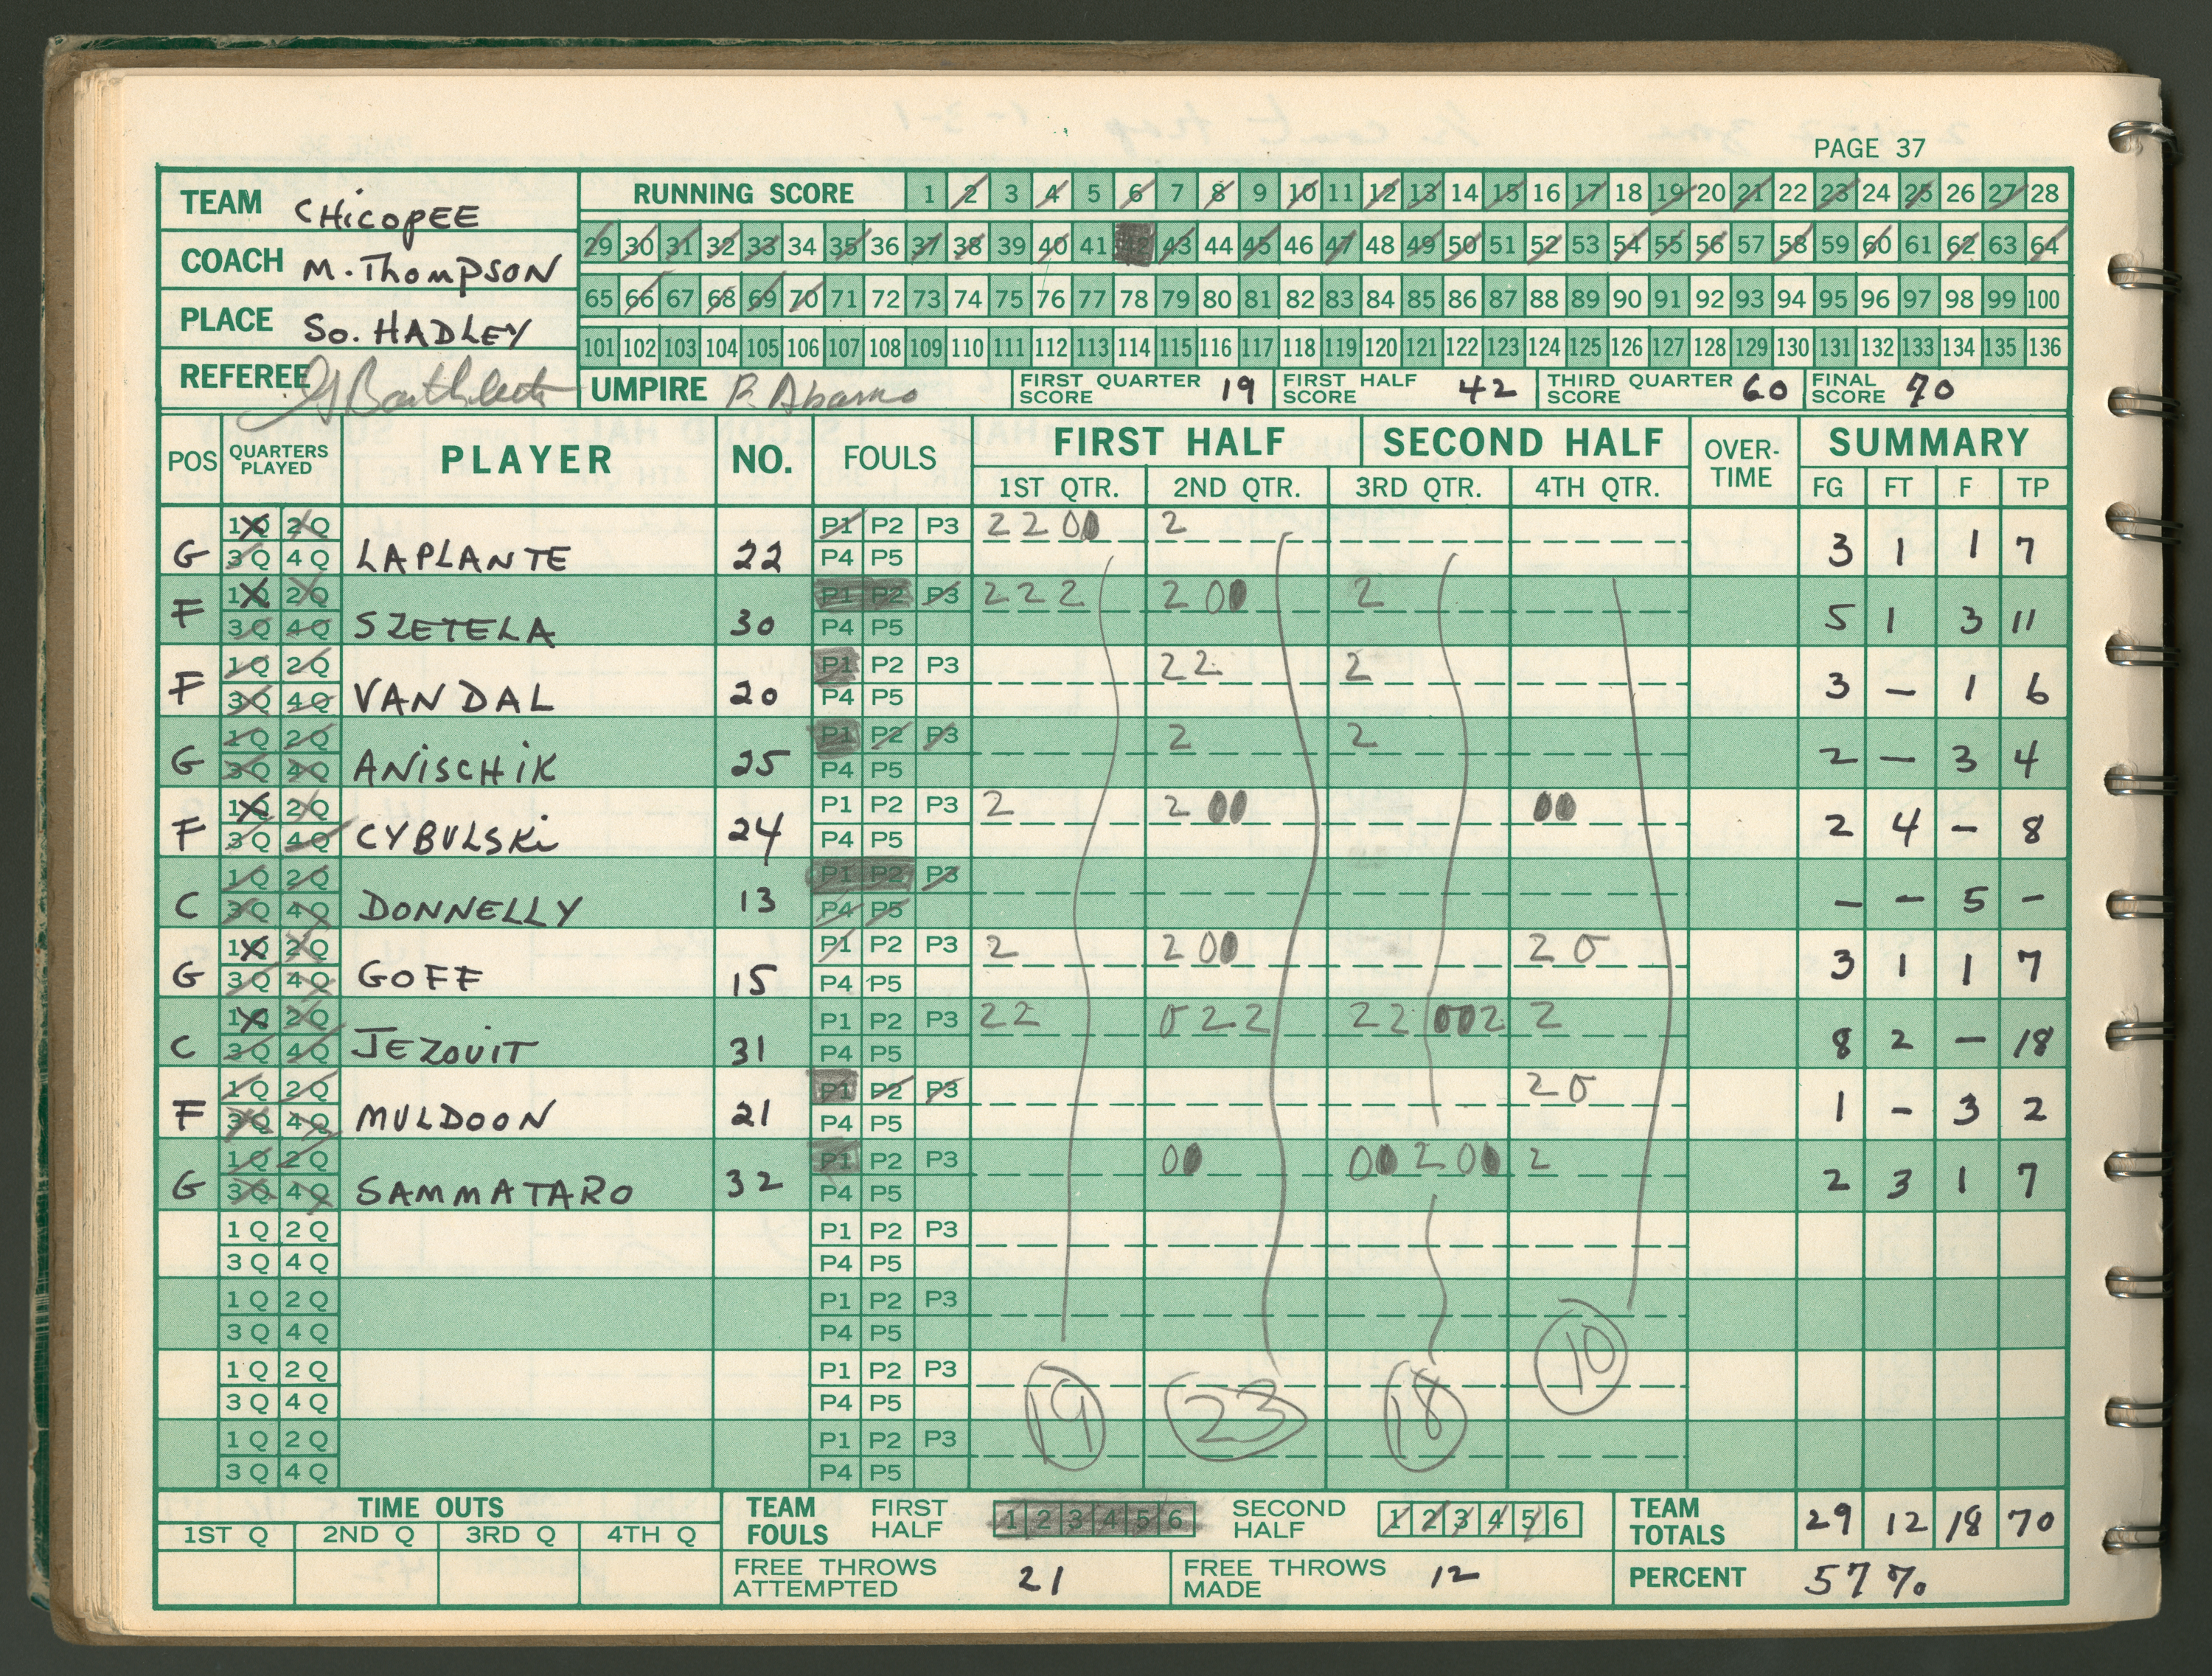 PAGE 37
TEAM CHICOPEE
COACH M. THOMPSON
PLACE SO. HADLEY
REFEREE
RUNNING SCORE 1 2 3 4 5 6 7 8 9 10 11 12 13 14 15 16 17 18 19 20 21 22 23 24 25 26 27 28
29 30 31 32 33 34 35 36 37 38 39 40 41 42 43 44 45 46 47 48 49 50 51 52 53 54 55 56 57 58 59 60 61 62 63 64
65 66 67 68 69 70 71 72 73 74 75 76 77 78 79 80 81 82 83 84 85 86 87 88 89 90 91 92 93 94 95 96 97 98 99 100
101 102 103 104 105 106 107 108 109 110 111 112 113 114 115 116 117 118 119 120 121 122 123 124 125 126 127 128 129 130 131 132 133 134 135 136
UMPIRE FIRST QUARTER SCORE 19 FIRST HALF SCORE 42 THIRD QUARTER SCORE 60 FINAL SCORE 70
POS QUARTERS PLAYED PLAYER NO. FOULS FIRST HALF SECOND HALF OVER-TIME SUMMARY
1ST QTR. 2ND QTR. 3RD QTR. 4TH QTR. FG FT F TP
1Q 2Q P1 P2 P3 2 2 0 0 2
G 3Q 4Q LAPLANTE 22 P4 P5 3 1 1 7
1Q 2Q P1 P2 P3 2 2 2 2 0 0 2
F 3Q 4Q SZETELA 30 P4 P5 5 1 3 11
1Q 2Q P1 P2 P3 2 2 2
F 3Q 4Q VANDAL 20 P4 P5 3 - 1 6
1Q 2Q P1 P2 P3 2 2
G 3Q 4Q ANISCHIK 25 P4 P5 2 - 3 4
1Q 2Q P1 P2 P3 2 2 0 0 0 0
F 3Q 4Q CYBULSKI 24 P4 P5 2 4 - 8
1Q 2Q P1 P2 P3
C 3Q 4Q DONNELLY 13 P4 P5 - - 5 -
1Q 2Q P1 P2 P3 2 2 0 0 2 0
G 3Q 4Q GOFF 15 P4 P5 3 1 1 7
1Q 2Q P1 P2 P3 2 2 0 2 2 2 2 0 0 2 2
C 3Q 4Q JEZOUIT 31 P4 P5 8 2 - 18
1Q 2Q P1 P2 P3 2 0
F 3Q 4Q MULDOON 21 P4 P5 1 - 3 2
1Q 2Q P1 P2 P3 0 0 0 0 2 0 0 2
G 3Q 4Q SAMMATARO 32 P4 P5 2 3 1 7
1Q 2Q P1 P2 P3
3Q 4Q P4 P5
1Q 2Q P1 P2 P3
3Q 4Q P4 P5
1Q 2Q P1 P2 P3
3Q 4Q P4 P5
1Q 2Q P1 P2 P3
3Q 4Q P4 P5
19 23 18 10
TIME OUTS
1ST Q 2ND Q 3RD Q 4TH Q
TEAM FOULS FIRST HALF 1 2 3 4 5 6 SECOND HALF 1 2 3 4 5 6
TEAM TOTALS 29 12 18 70
FREE THROWS ATTEMPTED 21 FREE THROWS MADE 12 PERCENT 57%